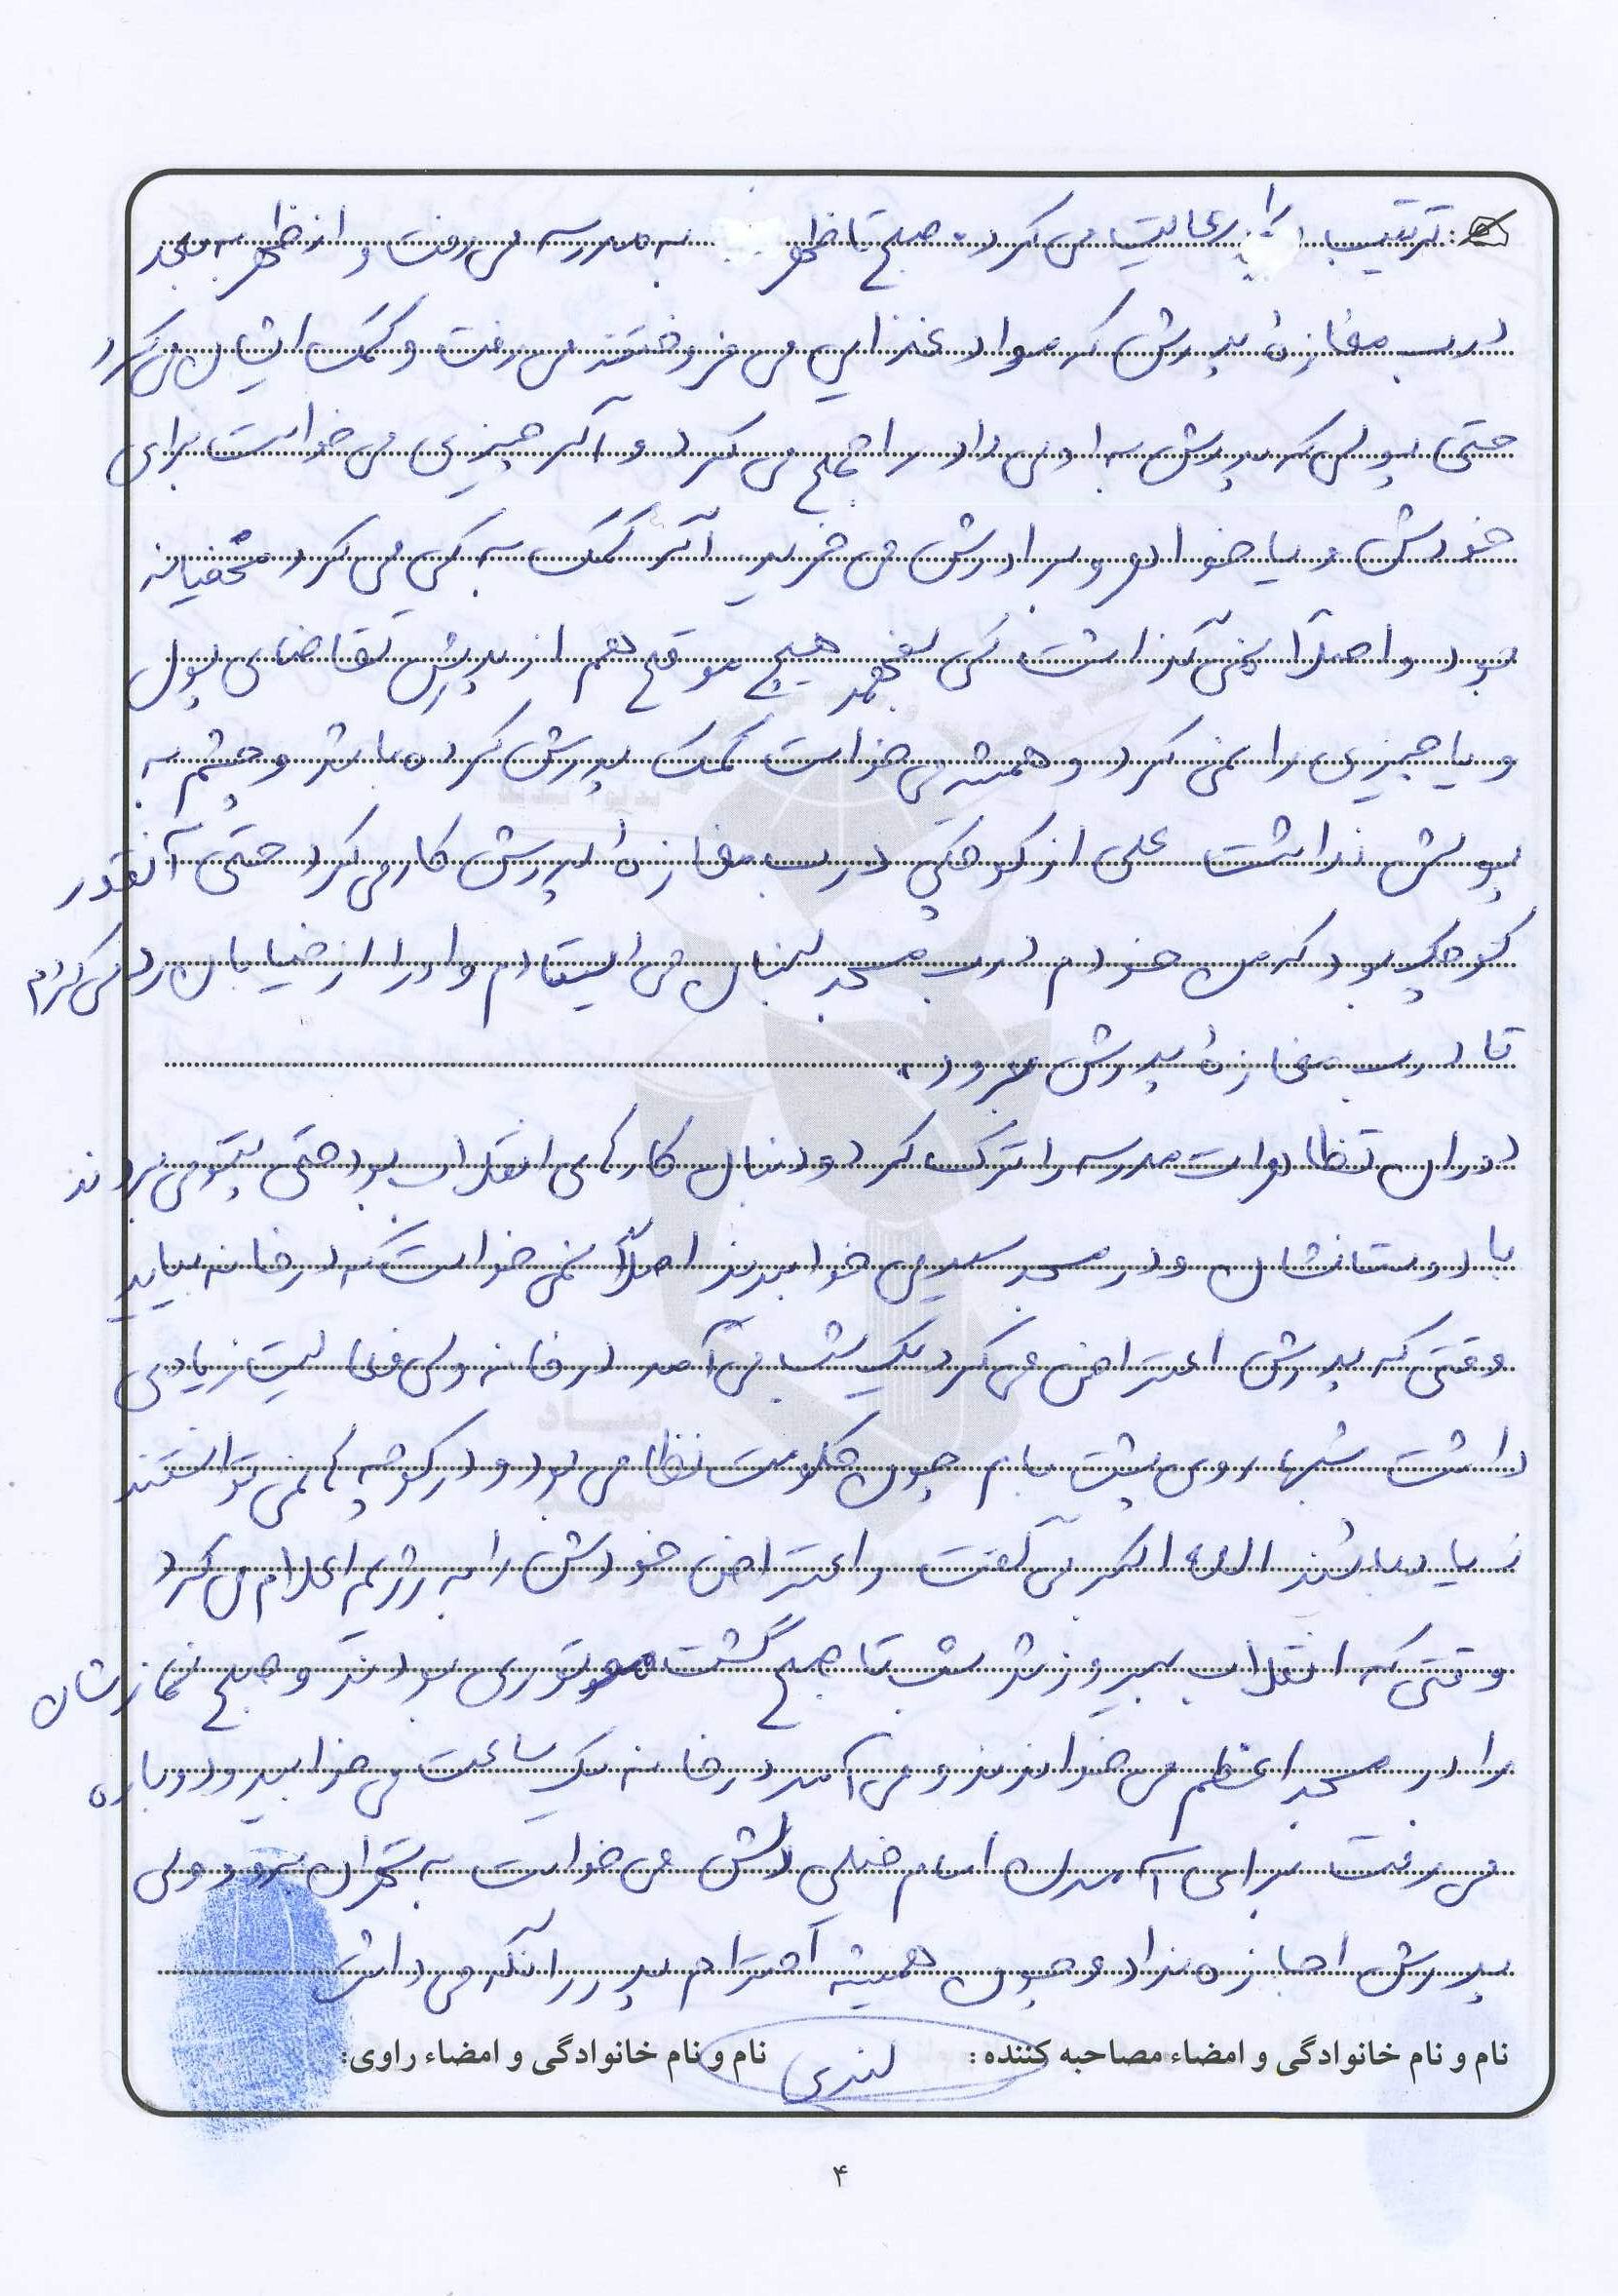 ترتیب را رعایت می کرد. صبح تا ظهر به مدرسه می رفت و از ظهر به بعد
درب مغازهٔ پدرش که مواد غذایی می فروختند می رفت و کمک ایشان می کرد
حتی پولی که پدرش به او می داد را جمع می کرد و اگر چیزی می خواست برای
خودش و یا خواهر و برادرش می خرید اگر کمک به کسی می کرد مخفیانه
بود و اصلاً نمی گذاشت کسی بفهمد هیچ موقع هم از پدرش تقاضای پول
و یا چیزی را نمی کرد و همیشه می خواست کمک پدرش کرده باشد و چشم به
پولش نداشت علی از کوچکی درب مغازهٔ پدرش کار می کرد حتی آنقدر
کوچک بود که من خودم درب مسجد لبنان می ایستادم و او را از خیابان رد می کردم
تا درب مغازهٔ پدرش برود.
دوران تظاهرات مدرسه را ترک کرد و دنبال کارهای انقلاب بود حتی پتو می بردند
با دوستانشان و در مسجد سید می خوابیدند اصلاً نمی خواست که در خانه بیاید
وقتی که پدرش اعتراض می کرد یک شب می آمد در خانه ولی فعالیت زیادی
داشت شبها روی پشت بام چون حکومت نظامی بود و در کوچه ها نمی توانستند
زیاد باشند الله اکبر می گفت و اعتراض خودش را به رژیم اعلام می کرد
وقتی که انقلاب پیروز شد شب تا صبح گشت موتوری بودند و صبح نمازشان
را در مسجد اعظم می خواندند و می آمد در خانه یک ساعت می خوابید و دوباره
می رفت برای آمدن امام خیلی دلش می خواست به تهران برود ولی
پدرش اجازه نداد و چون همیشه احترام پدر را نگه می داشت
نام و نام خانوادگی و امضاء مصاحبه کننده: نام و نام خانوادگی و امضاء راوی:
۴